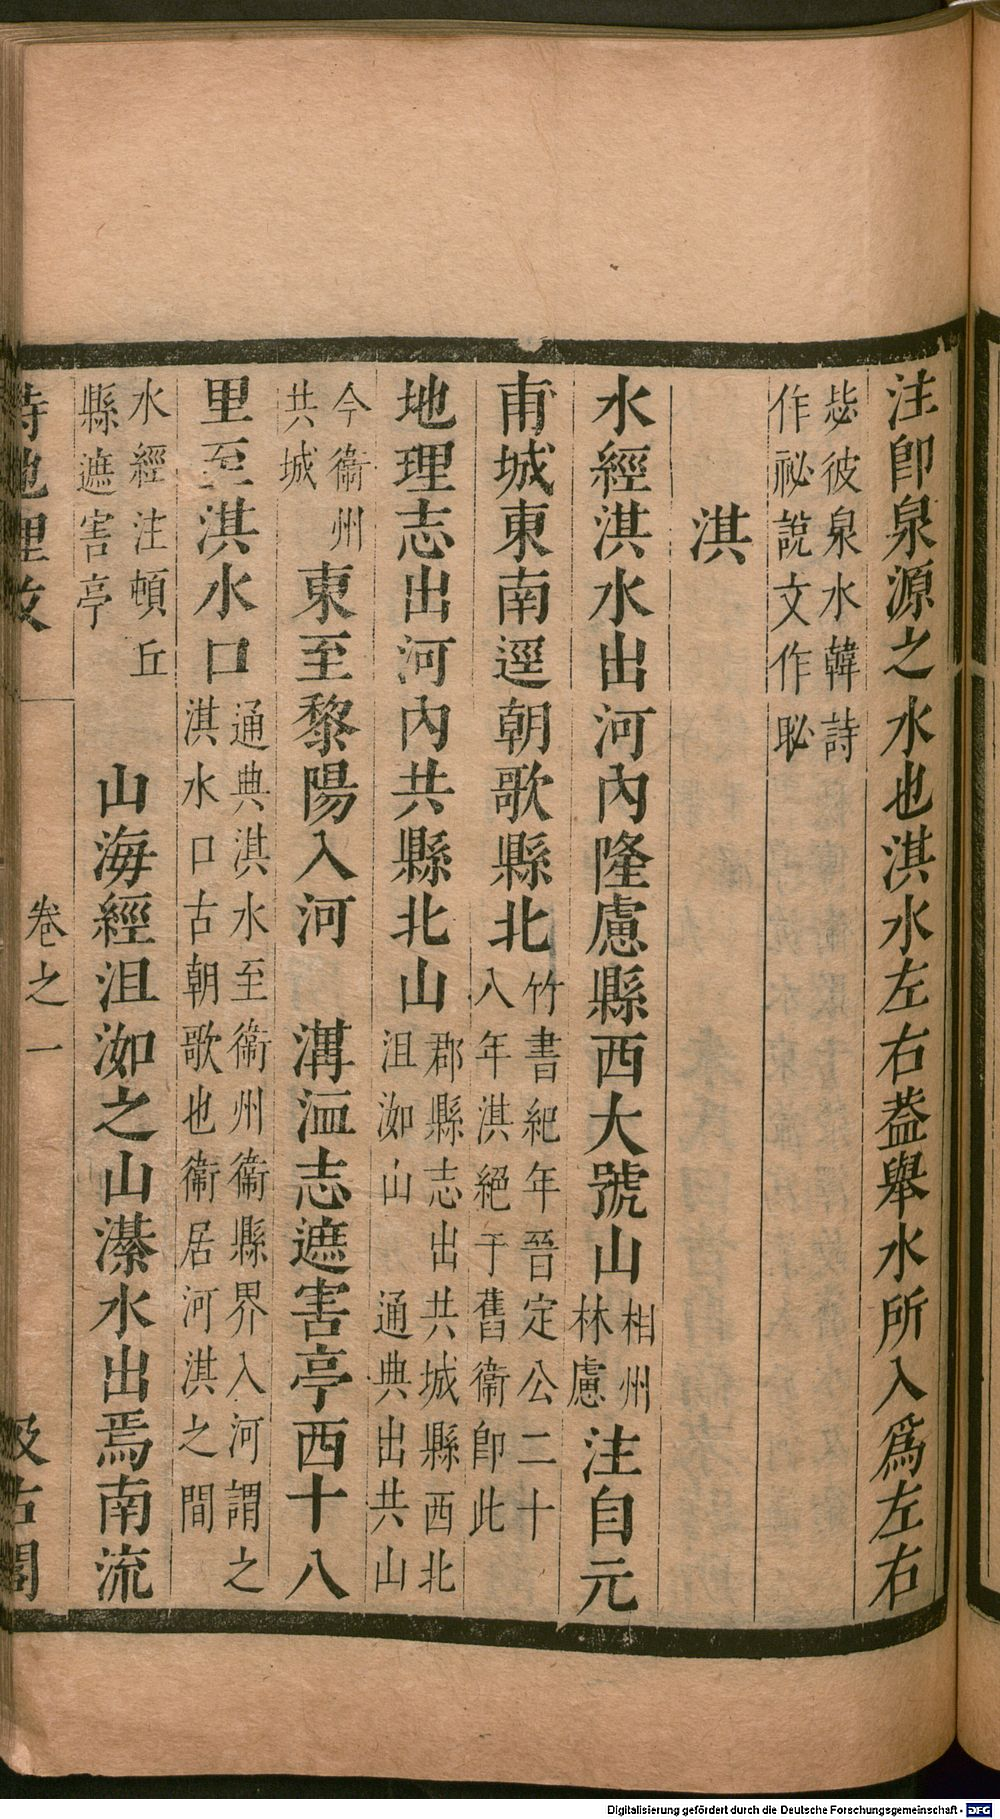 注卽泉源之水也淇水左右葢舉水所入爲左右
毖彼泉水韓詩
作祕說文作䀣
淇
水經淇水出河內隆慮縣西大號山
相州
林慮
注自元
甫城東南逕朝歌縣北
竹書紀年晉定公二十
八年淇絕于舊衞卽此
地理志出河內共縣北山
郡縣志出共城縣西北
沮洳山 通典出共山
今衞州
共城
東至黎陽入河 溝洫志遮害亭西十八
里至淇水口
通典淇水至衞州衞縣界入河謂之
淇水口古朝歌也衞居河淇之間
水經注頓丘
縣遮害亭
山海經沮洳之山濝水出焉南流
詩地理攷 卷之一 汲古閣
Digitalisierung gefördert durch die Deutsche Forschungsgemeinschaft - DFG